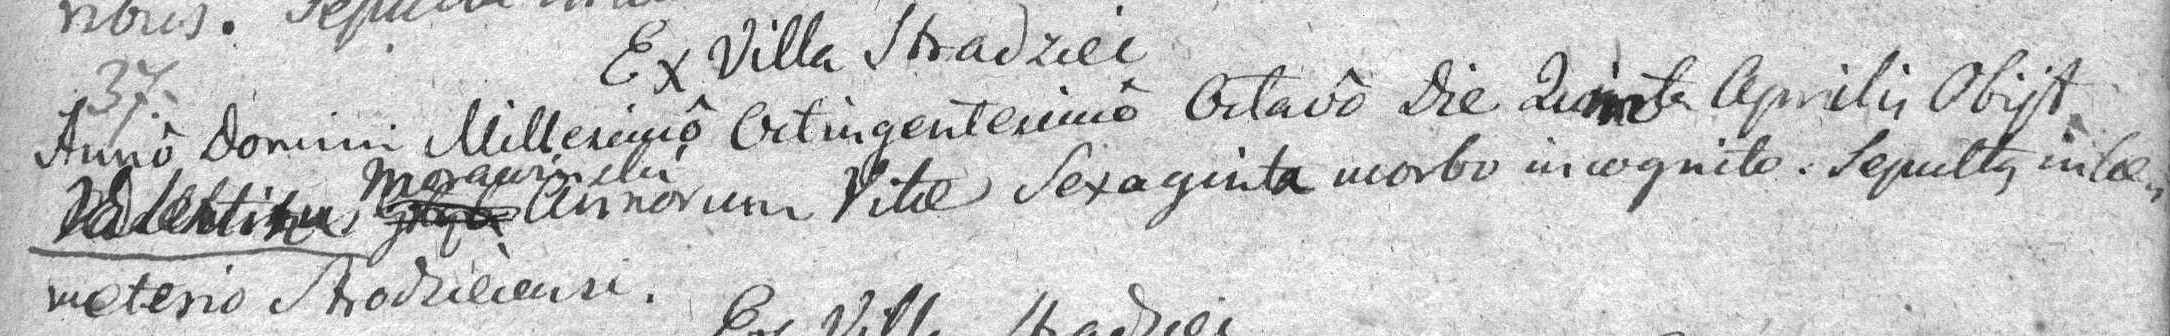 ribus. Sepult
Ex Villa Stradziei
37.
Annô Domini Millesimô Octingentesimô Octavô Die Quinta Aprilis Obijt
Morawinski
Valentinus Annorum Vitæ Sexaginta morbo incognito. Sepultq in Cœ-
meterio Stradzieiensi.
Ex Villa Stradziei